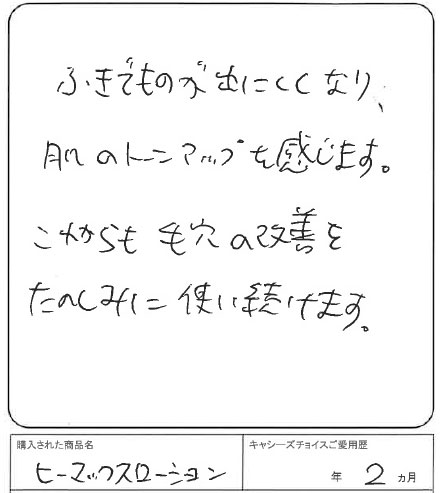 ふきでものが出にくくなり、
肌のトーンアップを感じます。
これからも毛穴の改善を
たのしみに使い続けます。
購入された商品名
キャシーズチョイスご愛用歴
ヒーマックスローション
年 2 カ月